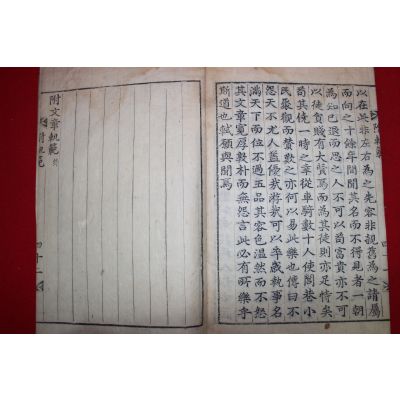 以在此非左右為之先容非親舊為之請屬
而向之十餘年間聞其名而不得見者一朝
為知己退而思之人不可以苟富貴亦不可
以徒貧賤有大賢焉而為其徒則亦足恃矣
苟其僥一時之幸從車騎數十人使閭巷小
民聚觀而贊歎之亦何以易此樂也傳曰不
怨天不尤人盖優哉游哉可以卒歲執事名
滿天下而位不過五品其容色溫然而不怒
其文章寬厚敦朴而無怨言此必有所樂乎
斯道也軾願與聞焉
附文章軌範 終
附軌範 四十二